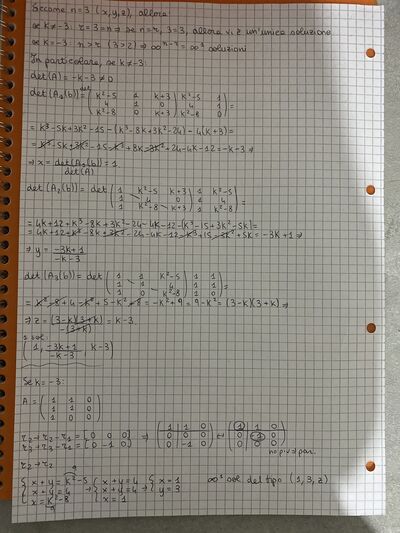 Siccome n=3 (x,y,z), allora
se k≠-3: r=3=n ⇒ se n=r, 3=3, allora vi è un'unica soluzione
se k=-3: n>r (3>2) ⇒ ∞^(n-r) = ∞¹ soluzioni
In particolare, se k≠-3:
det(A) = -k-3 ≠ 0
det(A₁(b)) = det ( k²-5 1 k+3 | k²-5 1
4 1 0 | 4 1
k²-8 0 k+3 | k²-8 0 ) =
= k³-5k+3k²-15-(k³-8k+3k²-24)-4(k+3) =
= k³-5k+3k²-15-k³+8k-3k²+24-4k-12 = -k-3 ⇒
⇒ x = det(A₁(b))/det(A) = 1
det(A₂(b)) = det ( 1 k²-5 k+3 | 1 k²-5
1 4 0 | 1 4
1 k²-8 k+3 | 1 k²-8 ) =
= 4k+12+k³-8k+3k²-24-4k-12-(k³-15+3k²-5k) =
= 4k+12+k³-8k+3k²-24-4k-12-k³+15-3k²+5k = -3k+1 ⇒
⇒ y = (-3k+1)/(-k-3)
det(A₃(b)) = det ( 1 1 k²-5 | 1 1
1 1 4 | 1 1
1 0 k²-8 | 1 0 ) =
= k²-8+4-k²+5-k²+8 = -k²+9 = 9-k² = (3-k)(3+k) ⇒
⇒ z = (3-k)(3+k)/-(3+k) = k-3
1 sol
( 1, (-3k+1)/(-k-3), k-3 )
Se k=-3:
A = ( 1 1 0
1 1 0
1 0 0 )
r₂→r₂-r₁ = [0 0 0]
r₃→r₃-r₁ = [0 -1 0] ⇒ ( 1 1 0
0 0 0
0 -1 0 ) ↔ ( 1 1 0
0 -1 0
0 0 0 )
no piv ⇒ par.
r₂→r₂
{ x+y=k²-5 { x+y=4 { x=1
x+y=4 → x+y=4 → y=3
x=k²-8 x=1
∞¹ sol del tipo (1,3,z)